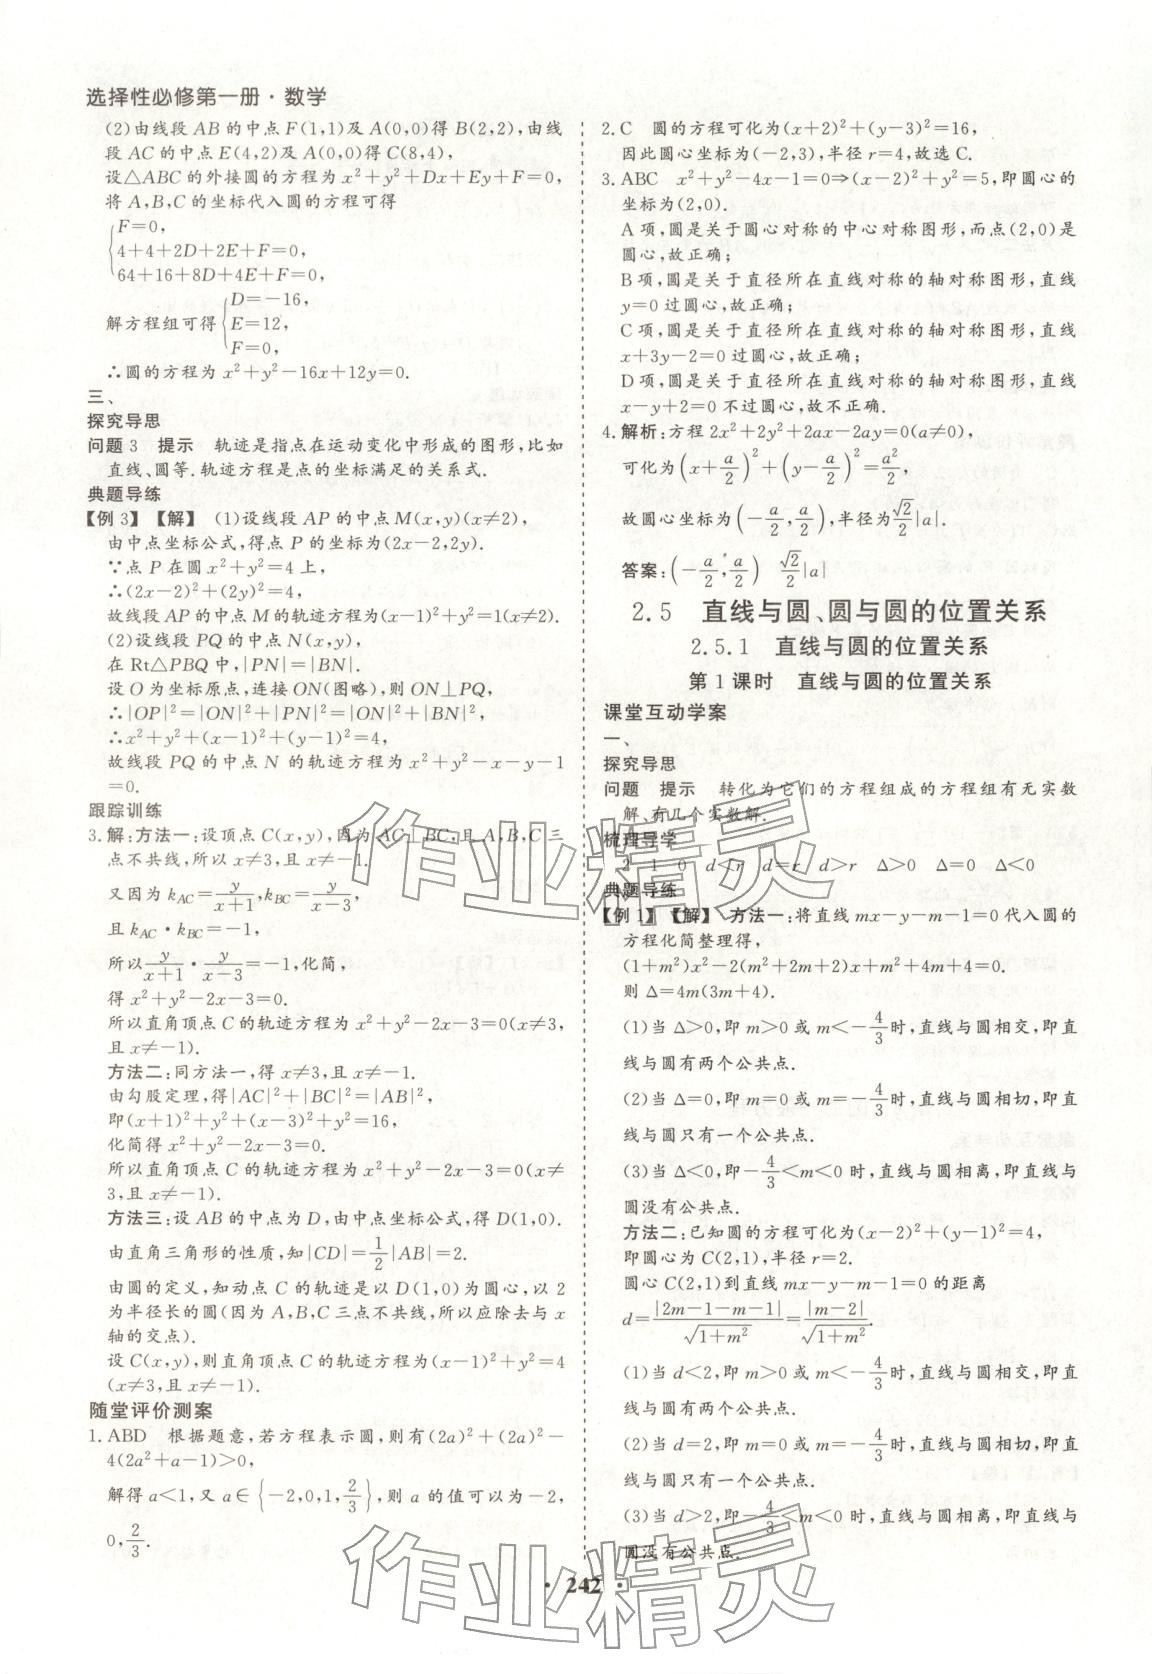 选择性必修第一册·数学
(2)由线段 AB 的中点 F(1,1)及 A(0,0)得 B(2,2),由线
段 AC 的中点 E(4,2)及 A(0,0)得 C(8,4),
设△ABC 的外接圆的方程为 x²+y²+Dx+Ey+F=0,
将 A,B,C 的坐标代入圆的方程可得
{F=0,
4+4+2D+2E+F=0,
64+16+8D+4E+F=0,
解方程组可得{D=-16,
E=12,
F=0,
∴圆的方程为 x²+y²-16x+12y=0.
三、
探究导思
问题 3 提示 轨迹是指点在运动变化中形成的图形,比如
直线、圆等.轨迹方程是点的坐标满足的关系式.
典题导练
【例 3】【解】 (1)设线段 AP 的中点 M(x,y)(x≠2),
由中点坐标公式,得点 P 的坐标为(2x-2,2y).
∵点 P 在圆 x²+y²=4 上,
∴(2x-2)²+(2y)²=4,
故线段 AP 的中点 M 的轨迹方程为(x-1)²+y²=1(x≠2).
(2)设线段 PQ 的中点 N(x,y),
在 Rt△PBQ 中,|PN|=|BN|.
设 O 为坐标原点,连接 ON(图略),则 ON⊥PQ,
∴|OP|²=|ON|²+|PN|²=|ON|²+|BN|²,
∴x²+y²+(x-1)²+(y-1)²=4,
故线段 PQ 的中点 N 的轨迹方程为 x²+y²-x-y-1
=0.
跟踪训练
3.解:方法一:设顶点 C(x,y),因为 AC⊥BC,且 A,B,C 三
点不共线,所以 x≠3,且 x≠-1.
又因为 k_AC=y/(x+1),k_BC=y/(x-3),
且 k_AC·k_BC=-1,
所以 y/(x+1)·y/(x-3)=-1,化简,
得 x²+y²-2x-3=0.
所以直角顶点 C 的轨迹方程为 x²+y²-2x-3=0(x≠3,
且 x≠-1).
方法二:同方法一,得 x≠3,且 x≠-1.
由勾股定理,得|AC|²+|BC|²=|AB|²,
即(x+1)²+y²+(x-3)²+y²=16,
化简得 x²+y²-2x-3=0.
所以直角顶点 C 的轨迹方程为 x²+y²-2x-3=0(x≠
3,且 x≠-1).
方法三:设 AB 的中点为 D,由中点坐标公式,得 D(1,0).
由直角三角形的性质,知|CD|=1/2|AB|=2.
由圆的定义,知动点 C 的轨迹是以 D(1,0)为圆心,以 2
为半径长的圆(因为 A,B,C 三点不共线,所以应除去与 x
轴的交点).
设 C(x,y),则直角顶点 C 的轨迹方程为(x-1)²+y²=4
(x≠3,且 x≠-1).
随堂评价测案
1.ABD 根据题意,若方程表示圆,则有(2a)²+(2a)²-
4(2a²+a-1)>0,
解得 a<1,又 a∈{-2,0,1,2/3},则 a 的值可以为-2,
0,2/3.
2.C 圆的方程可化为(x+2)²+(y-3)²=16,
因此圆心坐标为(-2,3),半径 r=4,故选 C.
3.ABC x²+y²-4x-1=0⇒(x-2)²+y²=5,即圆心的
坐标为(2,0).
A 项,圆是关于圆心对称的中心对称图形,而点(2,0)是
圆心,故正确;
B 项,圆是关于直径所在直线对称的轴对称图形,直线
y=0 过圆心,故正确;
C 项,圆是关于直径所在直线对称的轴对称图形,直线
x+3y-2=0 过圆心,故正确;
D 项,圆是关于直径所在直线对称的轴对称图形,直线
x-y+2=0 不过圆心,故不正确.
4.解析:方程 2x²+2y²+2ax-2ay=0(a≠0),
可化为(x+a/2)²+(y-a/2)²=a²/2,
故圆心坐标为(-a/2,a/2),半径为√2/2|a|.
答案:(-a/2,a/2) √2/2|a|
2.5 直线与圆、圆与圆的位置关系
2.5.1 直线与圆的位置关系
第 1 课时 直线与圆的位置关系
课堂互动学案
一、
探究导思
问题 提示 转化为它们的方程组成的方程组有无实数
解、有几个实数解.
梳理导学
2 1 0 d<r d=r d>r Δ>0 Δ=0 Δ<0
典题导练
【例 1】【解】 方法一:将直线 mx-y-m-1=0 代入圆的
方程化简整理得,
(1+m²)x²-2(m²+2m+2)x+m²+4m+4=0.
则 Δ=4m(3m+4).
(1)当 Δ>0,即 m>0 或 m<-4/3时,直线与圆相交,即直
线与圆有两个公共点.
(2)当 Δ=0,即 m=0 或 m=-4/3时,直线与圆相切,即直
线与圆只有一个公共点.
(3)当 Δ<0,即-4/3<m<0 时,直线与圆相离,即直线与
圆没有公共点.
方法二:已知圆的方程可化为(x-2)²+(y-1)²=4,
即圆心为 C(2,1),半径 r=2.
圆心 C(2,1)到直线 mx-y-m-1=0 的距离
d=|2m-1-m-1|/√(1+m²)=|m-2|/√(1+m²).
(1)当 d<2,即 m>0 或 m<-4/3时,直线与圆相交,即直
线与圆有两个公共点.
(2)当 d=2,即 m=0 或 m=-4/3时,直线与圆相切,即直
线与圆只有一个公共点.
(3)当 d>2,即-4/3<m<0 时,直线与圆相离,即直线与
圆没有公共点.
·242·
作业精灵
作业精灵